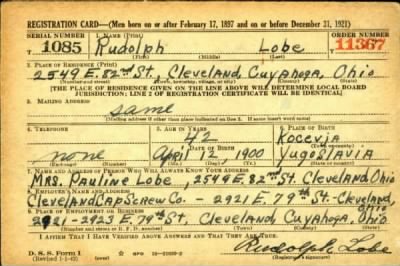 REGISTRATION CARD—(Men born on or after February 17, 1897 and on or before December 31, 1921)
SERIAL NUMBER 1. NAME (Print) ORDER NUMBER
1085 Rudolph Lobe 11367
(First) (Middle) (Last)
2. PLACE OF RESIDENCE (Print)
2549 E. 82nd St., Cleveland, Cuyahoga, Ohio
(Number and street) (Town, township, village, or city) (County) (State)
[THE PLACE OF RESIDENCE GIVEN ON THE LINE ABOVE WILL DETERMINE LOCAL BOARD
JURISDICTION; LINE 2 OF REGISTRATION CERTIFICATE WILL BE IDENTICAL]
3. MAILING ADDRESS
same
[Mailing address if other than place indicated on line 2. If same insert word same]
4. TELEPHONE 5. AGE IN YEARS 6. PLACE OF BIRTH
42 Kocevia
DATE OF BIRTH (Town or county)
none April 1900 Yugoslavia
(Mo.) (Day) (Yr.) (State or country)
7. NAME AND ADDRESS OF PERSON WHO WILL ALWAYS KNOW YOUR ADDRESS
Mrs. Pauline Lobe, 2549 E. 82nd St. Cleveland, Ohio
8. EMPLOYER'S NAME AND ADDRESS
Cleveland Cap Screw Co. - 2921 E. 79th St. - Cleveland, Ohio
9. PLACE OF EMPLOYMENT OR BUSINESS
2921-2923 E. 79th St., Cleveland, Cuyahoga, Ohio
(Number and street or R. F. D. number) (Town) (County) (State)
I AFFIRM THAT I HAVE VERIFIED ABOVE ANSWERS AND THAT THEY ARE TRUE.
D. S. S. Form 1
(Revised 1-1-42) Rudolph Lobe